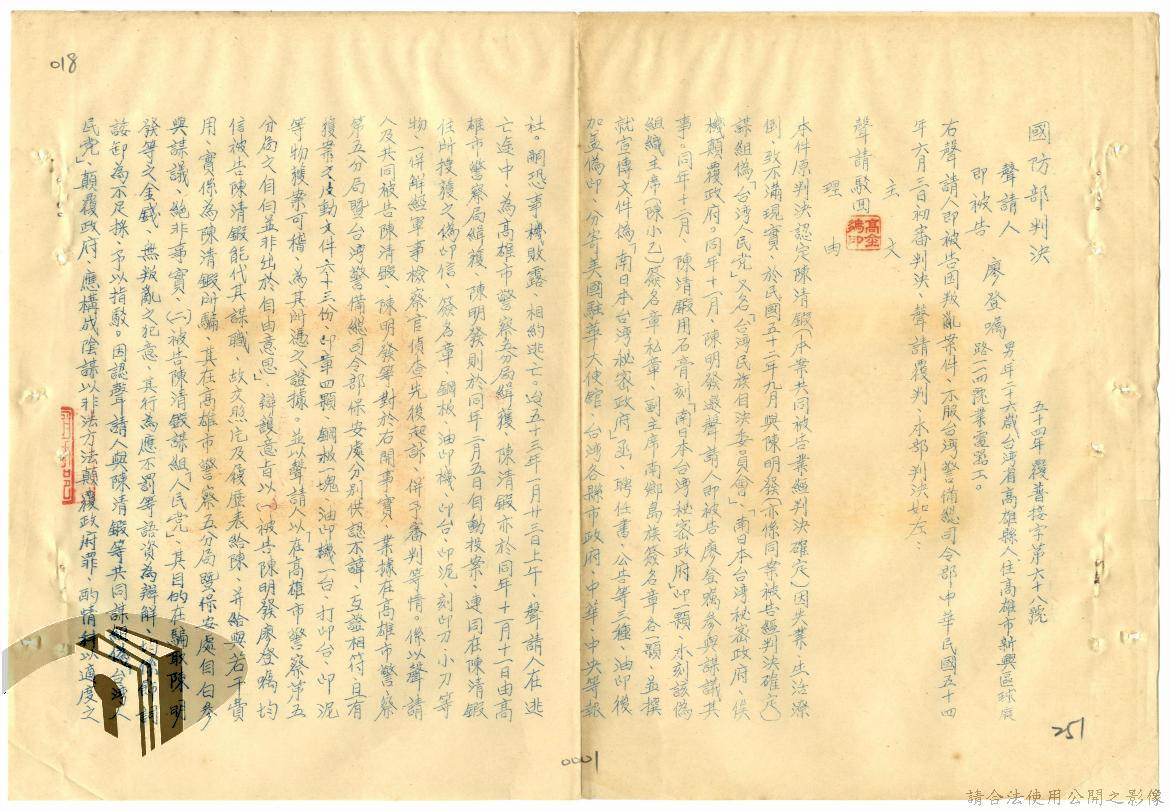 018
國防部判決
五十四年覆普接字第六十八號
聲請人
即被告 廖登囑 男年二十六歲台湾省高雄縣人住高雄市新興區球庭
路一四號業電器工。
右聲請人即被告因叛亂案件、不服台湾警備總司令部、中華民國五十四
年六月二日初審判決、聲請覆判、本部判決如左：
主文
聲請駁回
理由
本件原判決認定陳清鍛（本案共同被告業經判決確定）因失業、生活潦
倒、致不滿現實、於民國五十二年九月與陳明發（亦係同案被告經判決確定）
謀組偽「台湾人民党」又名「台湾民族自決委員會」、「南日本台湾秘密政府」、俟
機顛覆政府。同年十一月、陳明發邀聲請人即被告廖登囑參與謀議其
事。同年十二月、陳清鍛用石膏刻「南日本台湾秘密政府」印一顆、木刻該偽
組織主席（陳小己）簽名章私章、副主席南鄉島族簽名章各一顆、並撰
就宣傳文件偽「南日本台湾秘密政府」函、聘任書、公告等三種、油印後
加盖偽印、分寄美國駐華大使館、台湾各縣市政府、中華、中央等報
社。嗣恐事機敗露、相約逃亡。迨五十三年一月廿三日上午、聲請人在逃
亡途中、為高雄市警察五分局緝獲、陳清鍛亦於同年十一月十一日由高
雄市警察局緝獲、陳明發則於同年二月五日自動投案、連同在陳清鍛
住所搜獲之偽印信、簽名章、鋼板、油印機、印台、印泥、刻印刀、小刀等
物、一併解經軍事檢察官偵查先後起訴、併予審判等情。係以聲請
人及共同被告陳清鍛、陳明發等對於右開事實、業據在高雄市警察
第五分局暨台湾警備總司令部保安處分別供認不諱、互證相符、且有
獲案之反動文件、六十三份、印章四顆、鋼板一塊、油印機一台、打印台、印泥
等物獲案可稽、為其所憑之證據。並以聲請人以「在高雄市警察第五
分局之自白並非出於自由意思」、辯護意旨以㈠被告陳明發廖登囑均
信被告陳清鍛能代其謀職、故交照片及履歷表給陳、并給與若干費
用、實係為陳清鍛所騙、其在高雄市警察五分局暨保安處自白參
與謀議、絕非事實、㈡被告陳清鍛謀組「人民党」、其目的在騙取陳明
發等之金錢、無叛亂之犯意、其行為應不罰等語資為辯解、均係飾詞
諉卸為不足採、予以指駁。因認聲請人與陳清鍛等共同謀組偽「台湾人
民党」、顛覆政府、應構成陰謀以非法方法顛覆政府罪、酌情科以適度之
251
0001
請合法使用公開之影像